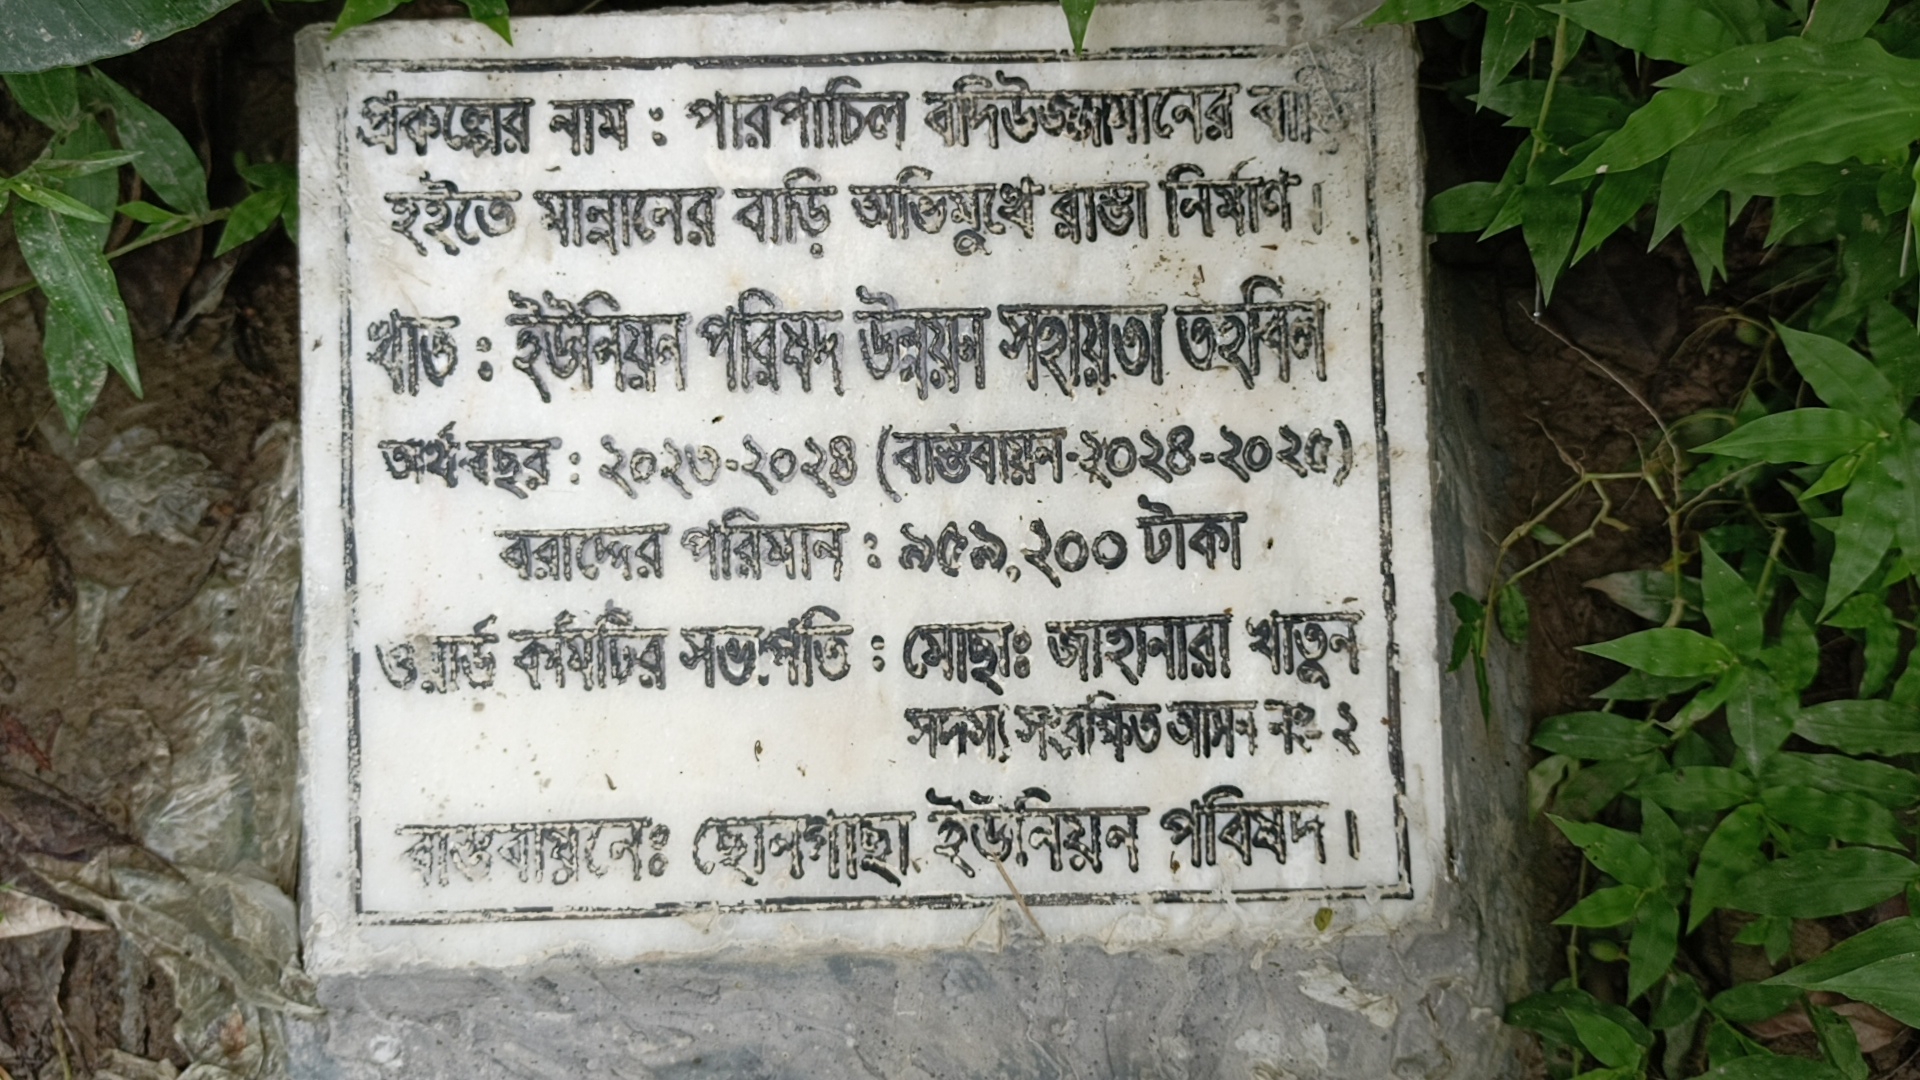 প্রকল্পের নাম : পারপাচিল বদিউজ্জামানের বাড়ি
হইতে মান্নানের বাড়ি অভিমুখে রাস্তা নির্মাণ।
খাত : ইউনিয়ন পরিষদ উন্নয়ন সহায়তা তহবিল
অর্থবছর : ২০২৩-২০২৪ (বাস্তবায়ন-২০২৪-২০২৫)
বরাদ্দের পরিমান : ৯৫৯,২০০ টাকা
ওয়ার্ড কমিটির সভাপতি : মোছাঃ জাহানারা খাতুন
সদস্য সংরক্ষিত আসন নং- ২
বাস্তবায়নেঃ ছোনগাছা ইউনিয়ন পরিষদ।